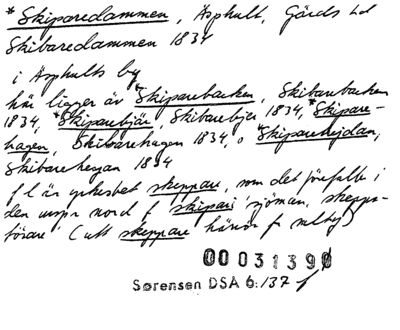 *Skiparedammen, Äsphult, Gärds hd
Skibaredammen 1834
i Äsphults by
här ligger äv *Skiparebacken, Skibarebacken
1834, *Skiparebjär, Skibarebjer 1834, *Skipare-
hagen, Skibarehagen 1834, o *Skiparehejdan,
Skibareheyan 1834
f l är yrkesbet skeppare, som det förefaller i
den urspr nord f skipari 'sjöman, skepps-
förare' (utt skeppare härör fr mlty)
00031390
Sørensen DSA 6:137